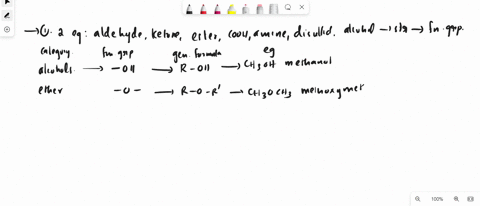 → Q. 2 eg: aldehyde, ketone, ester, COOH, amine, disulfid, alcohol → str → fn. grp.
category fn grp gen. formula eg
alcohols → -OH → R-OH → CH3OH methanol
ether -O- → R-O-R' → CH3OCH3 methoxymet
100%